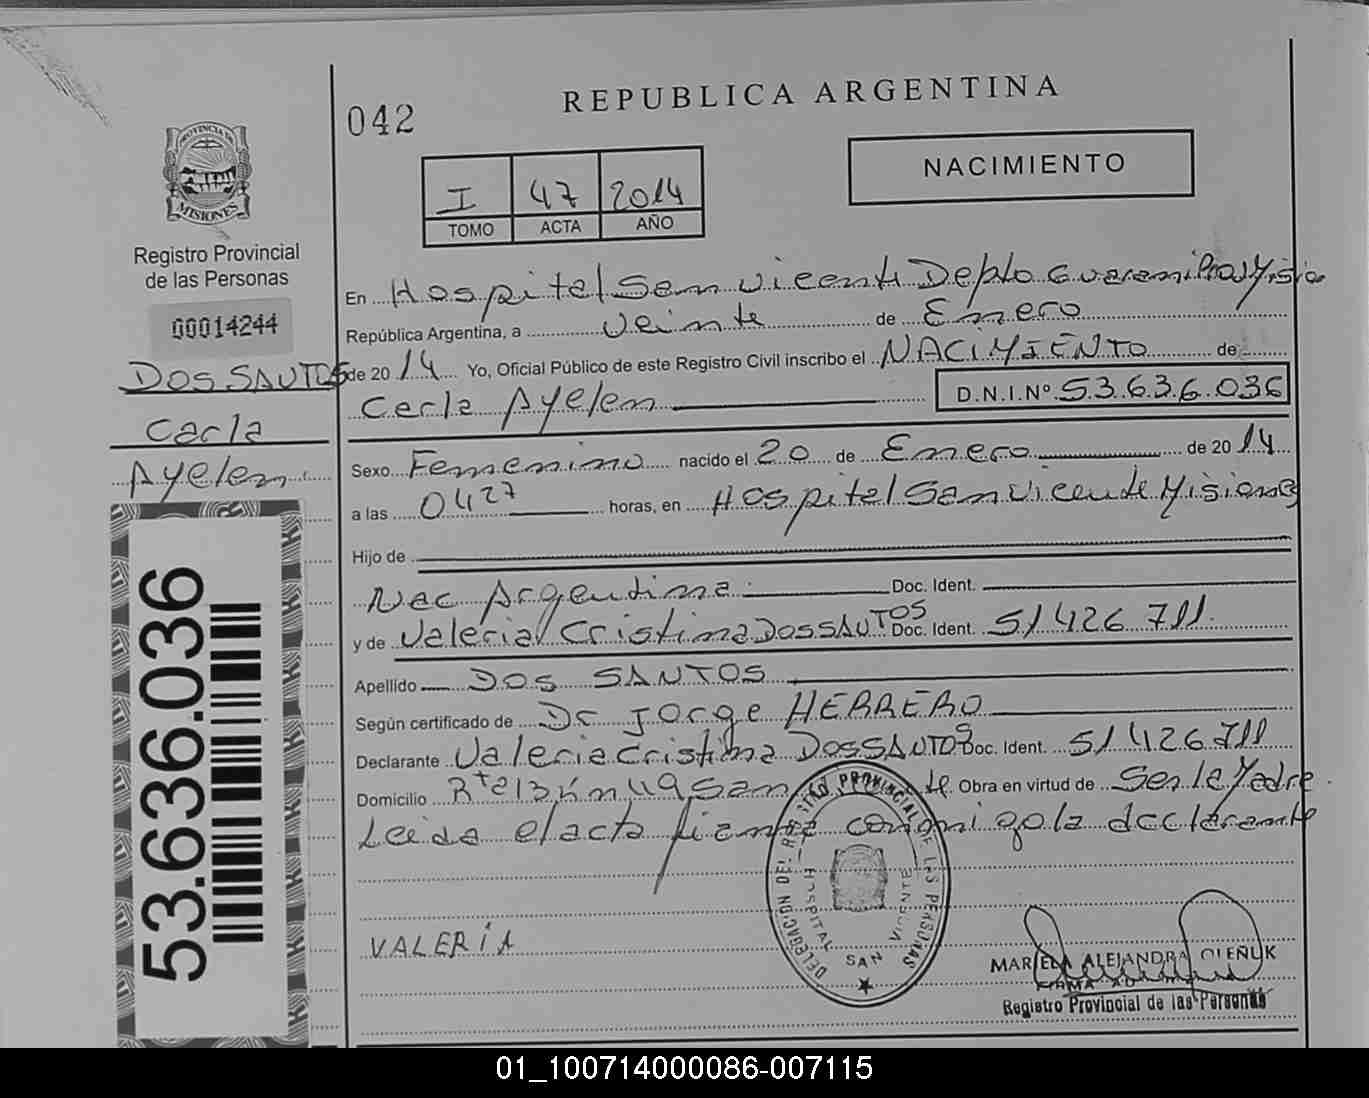 REPUBLICA ARGENTINA
042
PROVINCIA DE
MISIONES
Registro Provincial
de las Personas
00014244
DOS SANTOS
Carla
Ayelen
53.636.036
I 47 2014
TOMO ACTA AÑO
NACIMIENTO
En Hospital San Vicente Depto Guarani
República Argentina, a veinte de Enero
de 2014 Yo, Oficial Público de este Registro Civil inscribo el NACIMIENTO de
Carla Ayelen D.N.I.Nº 53.636.036
Sexo Femenino nacido el 20 de Enero de 2014
a las 0427 horas, en Hospital San Vicente Misiones
Hijo de
Nac Argentina Doc. Ident.
y de Valeria Cristina DOS SANTOS Doc. Ident. 51 426 711
Apellido DOS SANTOS
Según certificado de Dr Jorge HERRERO
Declarante Valeria Cristina DOS SANTOS Doc. Ident. 51 426 711
Domicilio San te Obra en virtud de Ser la Madre
Leida el acta firma conmigo la declarante
VALERIA
DELEGACION DEL REGISTRO PROVINCIAL DE LAS PERSONAS
HOSPITAL SAN VICENTE
MARIELA ALEJANDRA OLEÑUK
Registro Provincial de las Personas
01_100714000086-007115